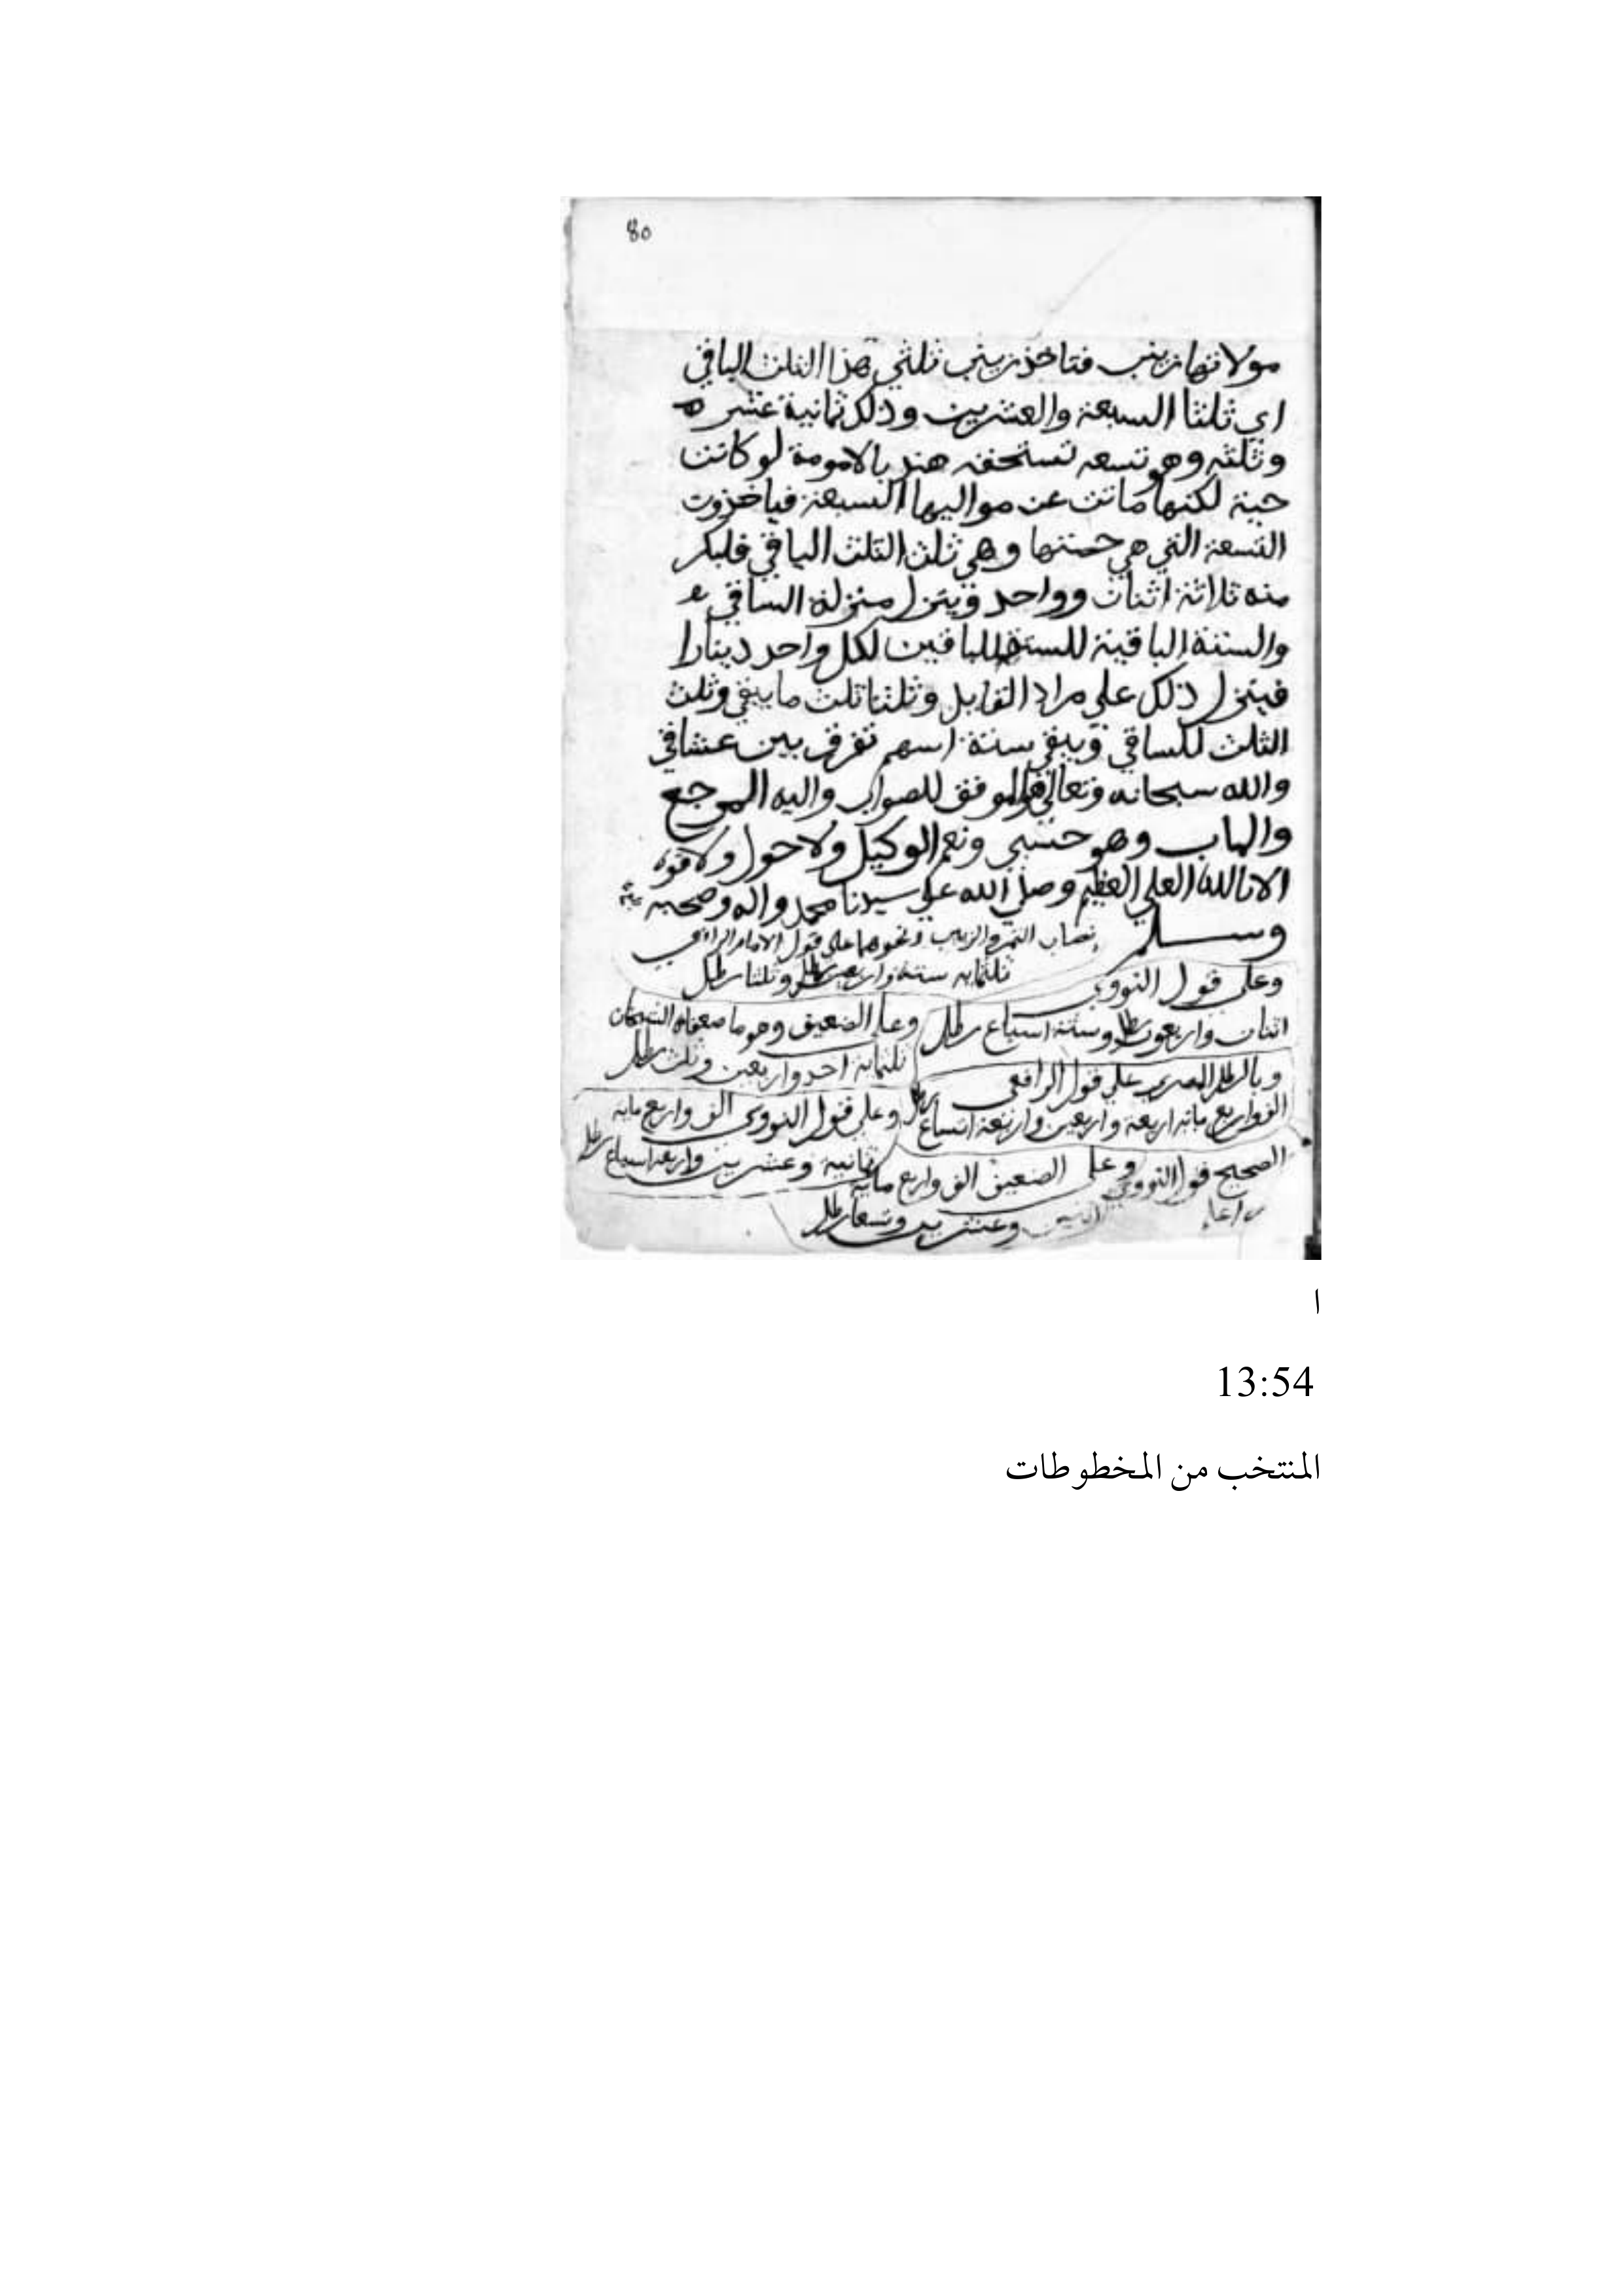 80
مولاتها زينب فتاخذ زينب ثلثي هذا الثلث الباقي
اي ثلثا السبعة والعشرين وذلك ثمانية عشر
وثلثه وهو تسعه تستحقه هند بالامومة لو كانت
حية لكنها ماتت عن مواليها السبعة فياخذوت
التسعة التي هي حصتها وهي ثلث الثلث الباقي فلبكر
منه ثلاثة اثنان وواحد وينزل منزلة الساقي
والستة الباقية للستة الباقين لكل واحد دينارا
فينزل ذلك علي مراد القايل وثلثا ثلث ما يبقي وثلث
الثلث للساقي ويبقي ستة اسهم تفرق بين عشاقي
والله سبحانه وتعالي الموفق للصواب واليه المرجع
والماب وهو حسبي ونعم الوكيل ولا حول ولا قوة
الا بالله العلي العظيم وصلي الله علي سيدنا محمد واله وصحبه
وسلم
نصاب التمر والزبيب ونحوهما علي قول الامام الرافعي
ثلثمايه ستة واربعين رطل وثلثا رطل
وعلى قول النووي
اثنان واربعون رطل وستة اسباع رطل
وعلى الضعيف وهو ما ضعفاه الشيخان
ثلثمايه احد واربعين وثلث رطل
وبالرطل المصري علي قول الرافعي
الف واربع مايه اربعة واربعين واربعة اتساع رطل
وعلي قول النووي الف واربع مايه
ثمانية وعشرين واربعة اسباع رطل
الصحيح قول النووي
وعلى الضعيف الف واربع مايه
اثنين وعشرين وتسعا رطل
ا
13:54
المنتخب من المخطوطات